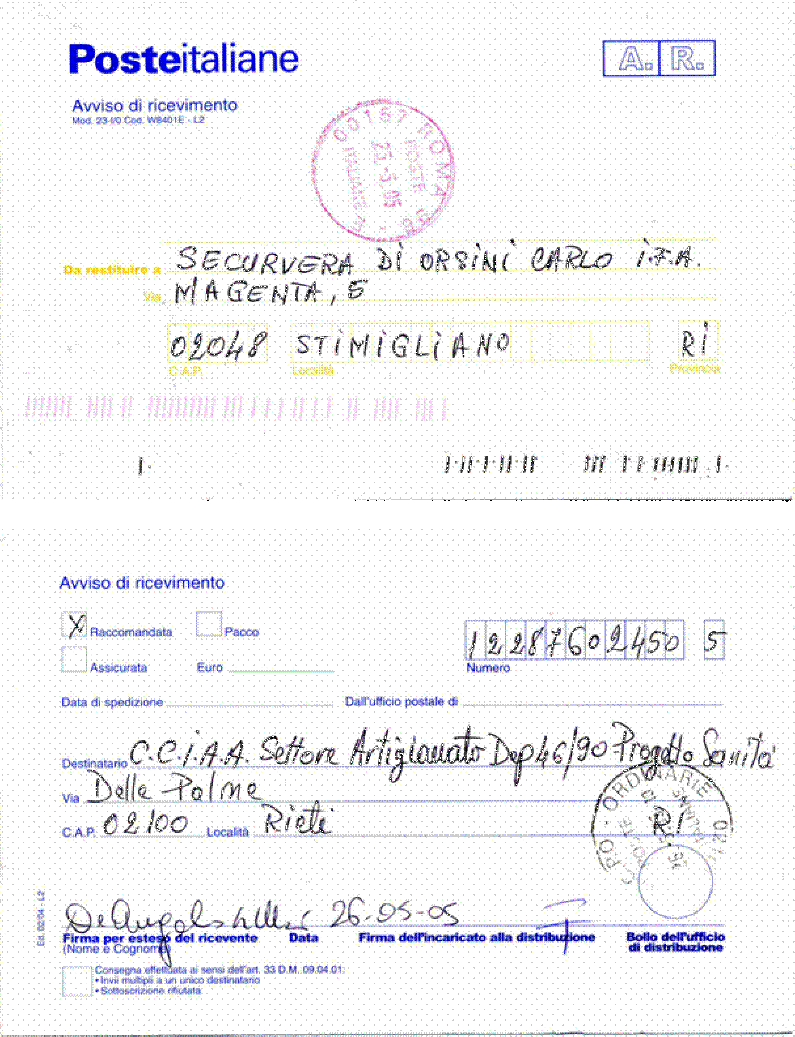 Posteitaliane
A. R.
Avviso di ricevimento
Mod. 23-I/0 Cod. W8401E - L2
00187 ROMA
POSTE
ITALIANE
Da restituire a SECURVERA Di ORSiNi CARLO i.F.A.
Via MAGENTA, 5
02048 STiMiGLiANO Ri
C.A.P. Località Provincia
Avviso di ricevimento
X Raccomandata Pacco
Assicurata Euro
12287602450 5
Numero
Data di spedizione Dall'ufficio postale di
Destinatario C.C.i.A.A. Settore Artigianato Dep 46/90 Progetto Sanità
Via Delle Palme
C.A.P. 02100 Località Rieti Ri
ORDINARIE
De Angelis 26-05-05
Firma per esteso del ricevente Data Firma dell'incaricato alla distribuzione Bollo dell'ufficio
(Nome e Cognome) di distribuzione
Consegna effettuata ai sensi dell'art. 33 D.M. 09.04.01:
• Invii multipli a un unico destinatario
• Sottoscrizione rifiutata
Ed. 02/04 - L2